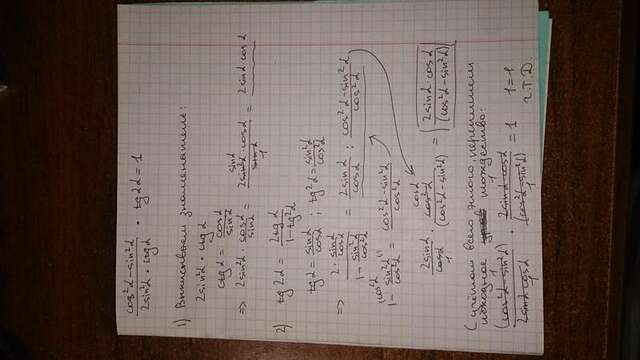 (cos²α - sin²α)/(2sin²α · ctgα) · tg2α = 1
1) Выписываем знаменатель:
2sin²α · ctgα
ctgα = cosα/sinα
=> 2sin²α · cosα/sinα = (2sin²α · cosα)/sinα = 2sinα · cosα
sinα
1
2) tg2α = 2tgα/(1 - tg²α)
tgα = sinα/cosα ; tg²α = sin²α/cos²α
=> (2 · sinα/cosα)/(1 - sin²α/cos²α) = 2sinα/cosα : (cos²α - sin²α)/cos²α
1^(cos²α) - sin²α^(1)/cos²α = (cos²α - sin²α)/cos²α
2sinα/cosα · cos²α/(cos²α - sin²α) = (2sinα · cosα)/(cos²α - sin²α)
cosα
1
С учётом всего этого, перепишем
исходное тождество:
(cos²α - sin²α)/(2sinα cosα) · (2sinα cosα)/(cos²α - sin²α) = 1 1=1
1 1
1 1
ч.т.д.